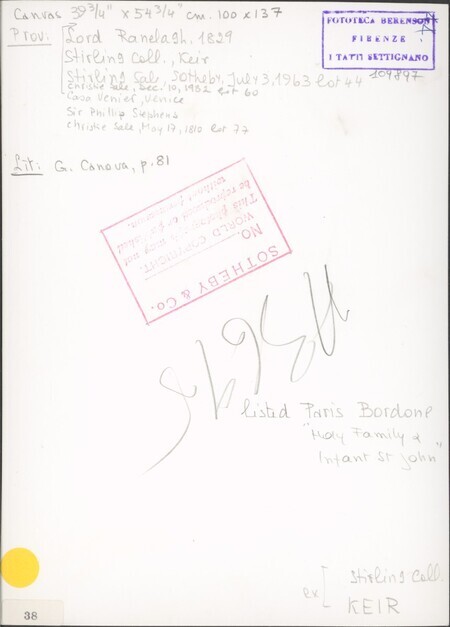 Canvas 39 3/4" x 54 3/4" cm. 100 x 137
Prov: Lord Ranelagh, 1829
Stirling Coll., Keir
Stirling Sale, Sotheby, July 3, 1963 lot 44
Christie Sale, Dec. 10, 1982 lot 60
Casa Venier, Venice
Sir Phillip Stephens
Christie Sale, May 17, 1810 lot 77
FOTOTECA BERENSON
FIRENZE
I TATTI SETTIGNANO
109897
Lit: G. Canova, p. 81
SOTHEBY & Co.
NO.
WORLD COPYRIGHT.
This photograph may not
be reproduced
without
listed Paris Bordone
"Holy Family &
Infant St John"
ex [ Stirling Coll.
KEIR
38